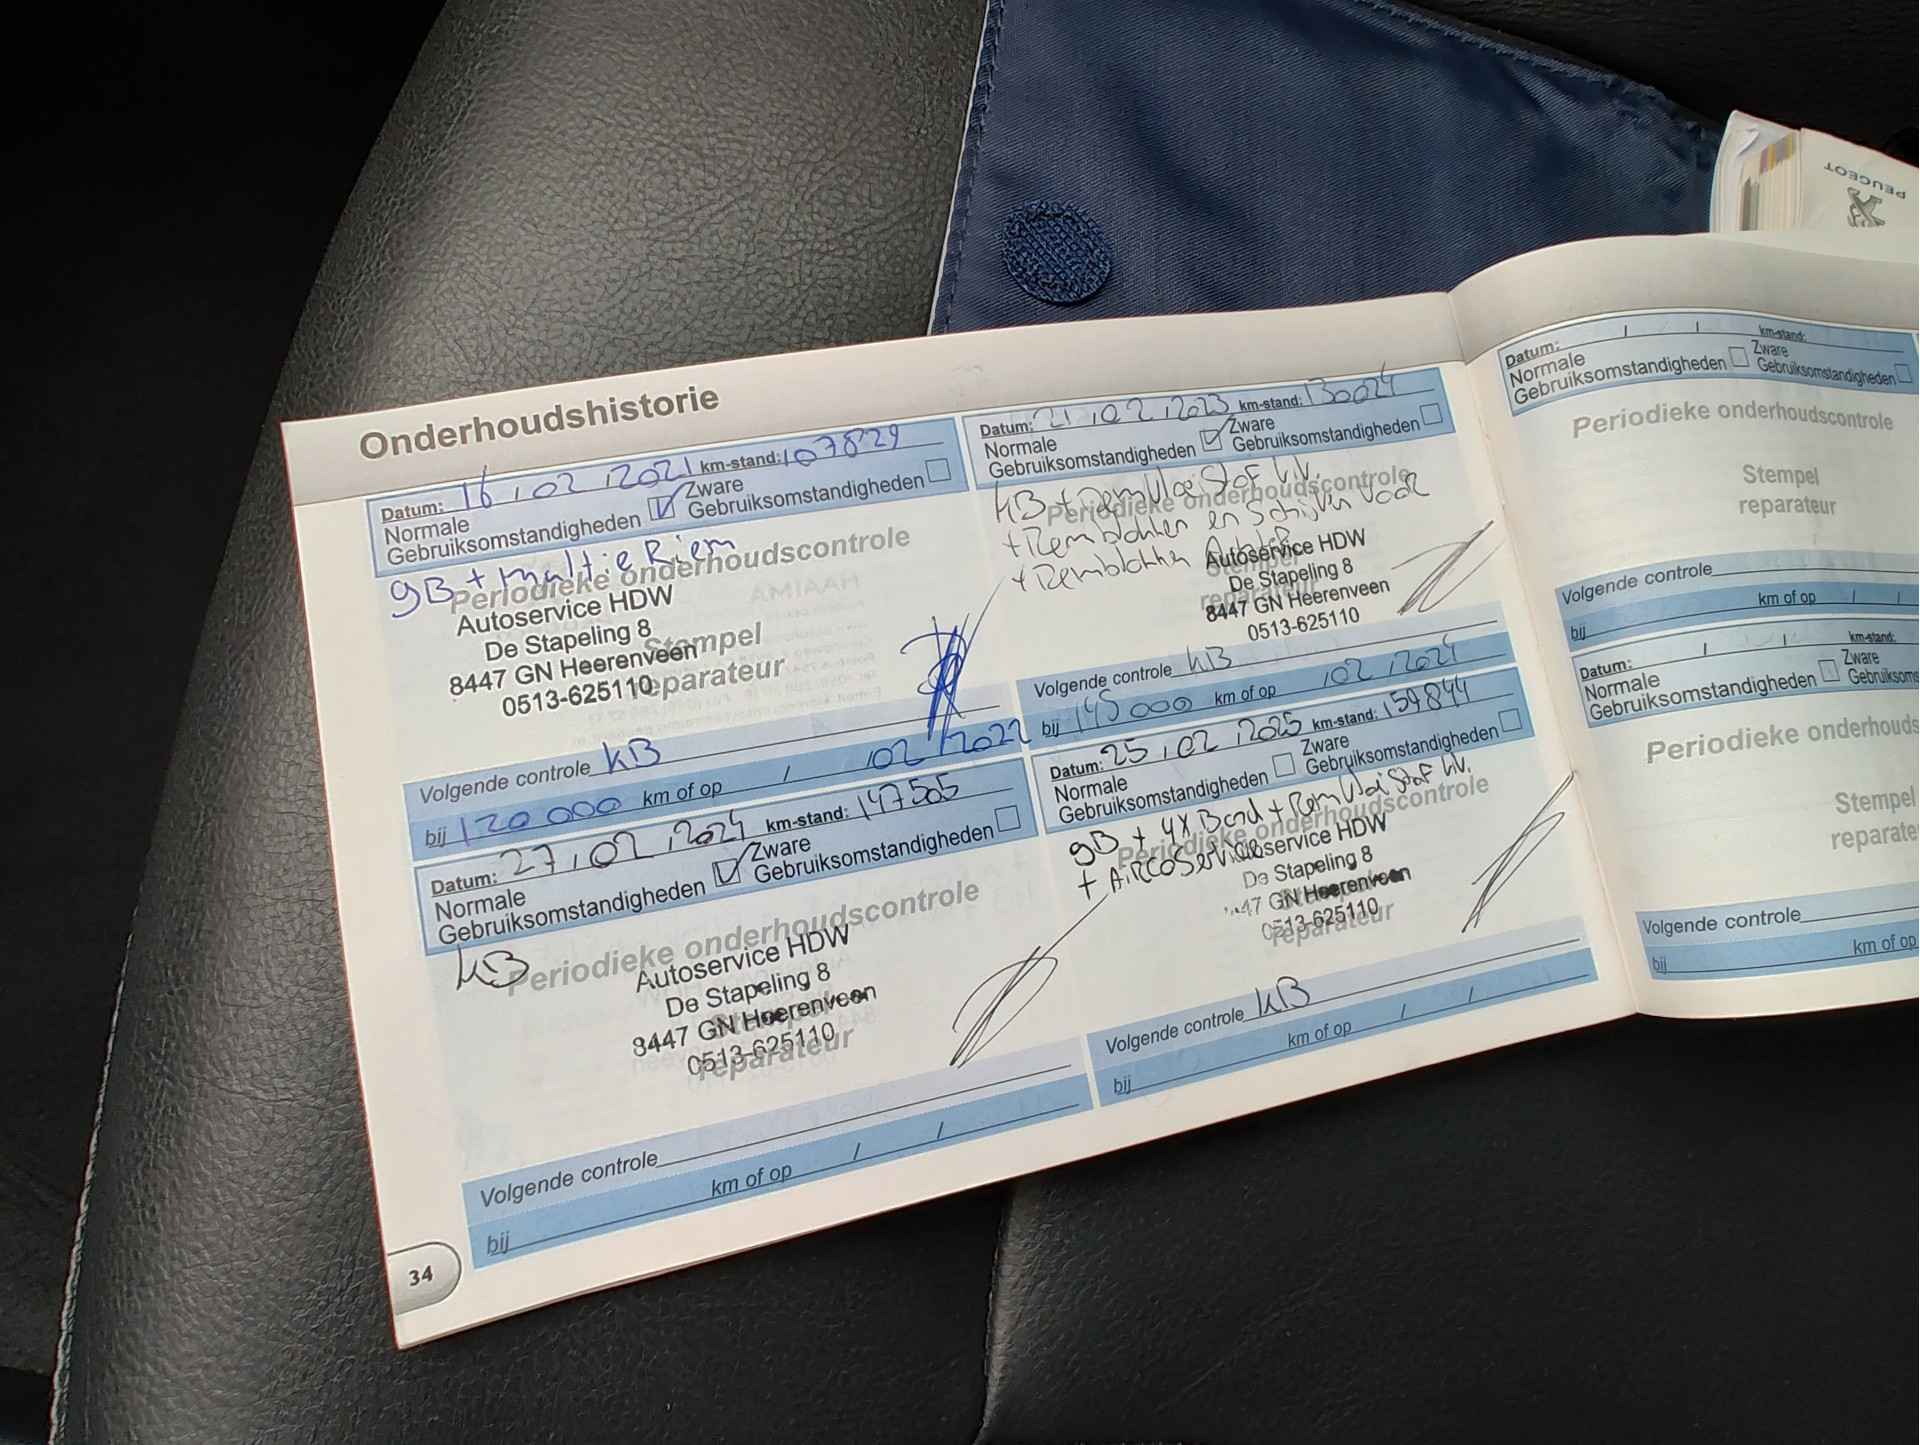 PEUGEOT
Onderhoudshistorie
Datum: 16 / 02 / 2021 km-stand: 107829
Normale Gebruiksomstandigheden Zware Gebruiksomstandigheden
gB + multie Riem
Periodieke onderhoudscontrole
Autoservice HDW
De Stapeling 8
8447 GN Heerenveen
0513-625110
Stempel
reparateur
Volgende controle kB
bij 120 000 km of op / 02 / 2022
Datum: 21 / 02 / 2023 km-stand: 130024
Normale Gebruiksomstandigheden Zware Gebruiksomstandigheden
kB + Remvloeistof W.
+ Remblokken en Schijven Voor
+ Remblokken Achter
Periodieke onderhoudscontrole
Autoservice HDW
De Stapeling 8
8447 GN Heerenveen
0513-625110
Stempel
reparateur
Volgende controle kB
bij 145 000 km of op / 02 / 2024
Datum: 27 / 02 / 2024 km-stand: 147505
Normale Gebruiksomstandigheden Zware Gebruiksomstandigheden
kB
Periodieke onderhoudscontrole
Autoservice HDW
De Stapeling 8
8447 GN Heerenveen
0513-625110
reparateur
Volgende controle
bij km of op / /
Datum: 25 / 02 / 2025 km-stand: 159844
Normale Gebruiksomstandigheden Zware Gebruiksomstandigheden
gB + 4x Band + Remvloeistof W.
+ Aircoservice
Periodieke onderhoudscontrole
Autoservice HDW
De Stapeling 8
8447 GN Heerenveen
0513-625110
reparateur
Volgende controle kB
bij km of op / /
34
Datum: / / km-stand:
Normale Gebruiksomstandigheden Zware Gebruiksomstandigheden
Periodieke onderhoudscontrole
Stempel
reparateur
Volgende controle
bij km of op / /
Datum: / / km-stand:
Normale Gebruiksomstandigheden Zware Gebruiksoms
Periodieke onderhouds
Stempel
reparate
Volgende controle
bij km of op